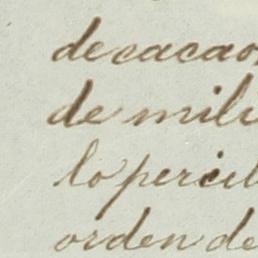 de cacao
de mili
lo percib
orden de